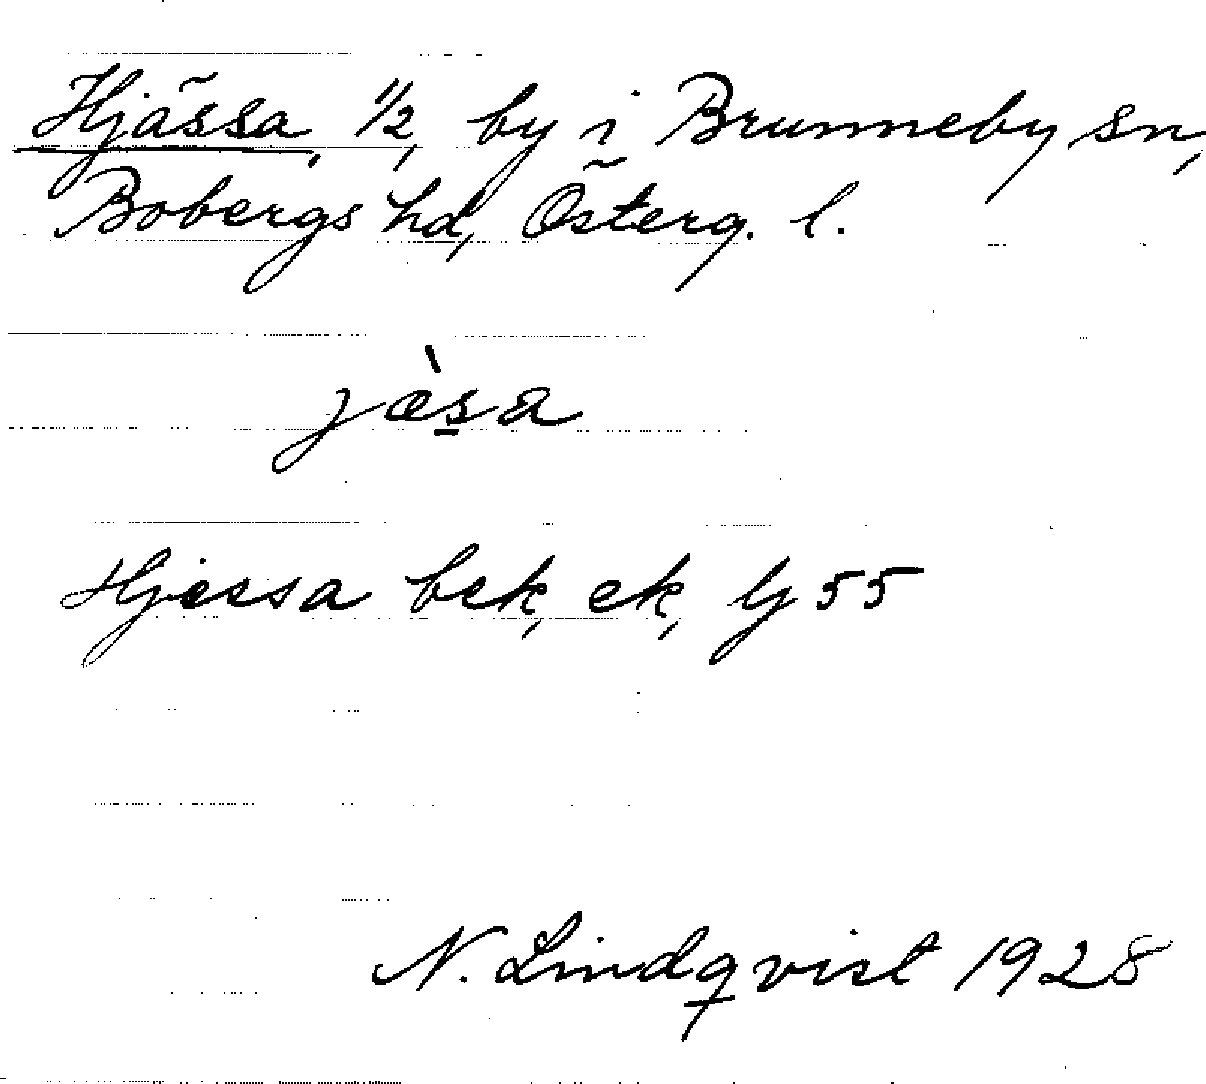 Hjässa, 1/2, by i Brunneby sn,
Bobergs hd, Österg. l.
jæ̀s̲a
Hjessa bek, ek, lj 55
N. Lindqvist 1928